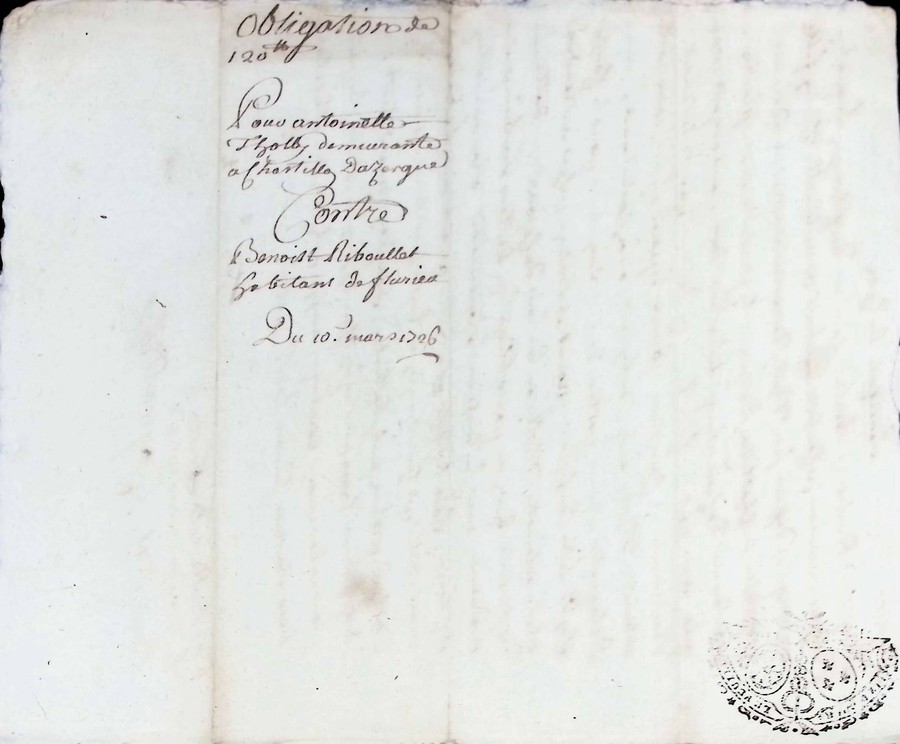 Obligation de
120 tt
Pour antoinette
Tholly demeurante
a Chastillo Dazergue
Contre
Benoist Riboullet
habitant de flurieu
Du 10e mars 1726